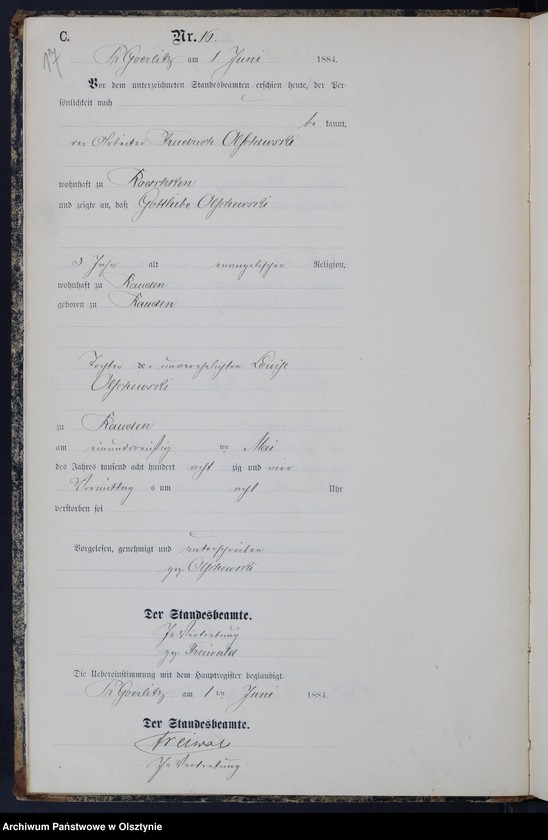 C.
Nr. 16.
17
Pr Goerlitz am 1 Juni 1884.
Vor dem unterzeichneten Standesbeamten erschien heute, der Per-
sönlichkeit nach
be kannt,
der Arbeiter Olschewski
wohnhaft zu
und zeigte an, daß Gottliebe Olschewski
3 Jahr alt evangelischer Religion,
wohnhaft zu Rauden
geboren zu Rauden
Tochter der unverehelichten Louise
Olschewski
zu Rauden
am einunddreißig ten Mai
des Jahres tausend acht hundert acht zig und vier
Vormittag s um acht Uhr
verstorben sei
Vorgelesen, genehmigt und unterschrieben
gez. Olschewski
Der Standesbeamte.
In Vertretung
gez. Freiwald
Die Uebereinstimmung mit dem Hauptregister beglaubigt.
Pr Goerlitz am 1 ten Juni 1884.
Der Standesbeamte.
Freiwald
In Vertretung
Archiwum Państwowe w Olsztynie